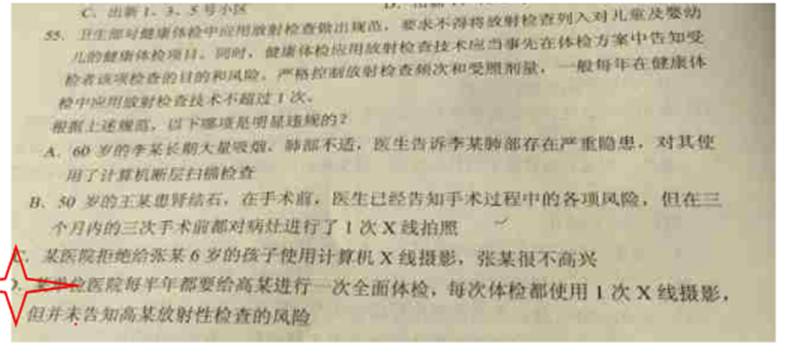 C. 出新 1、3、5 号小区
55. 卫生部对健康体检中应用放射检查做出规范，要求不得将放射检查列入对儿童及婴幼
儿的健康体检项目。同时，健康体检应用放射检查技术应当事先在体检方案中告知受
检者该项检查的目的和风险。严格控制放射检查频次和受照剂量，一般每年在健康体
检中应用放射检查技术不超过 1 次。
根据上述规范，以下哪项是明显违规的？
A. 60 岁的李某长期大量吸烟，肺部不适，医生告诉李某肺部存在严重隐患，对其使
用了计算机断层扫描检查
B. 50 岁的王某患肾结石，在手术前，医生已经告知手术过程中的各项风险，但在三
个月内的三次手术前都对病灶进行了 1 次 X 线拍照
C. 某医院拒绝给张某 6 岁的孩子使用计算机 X 线摄影，张某很不高兴
医院每半年都要给高某进行一次全面体检，每次体检都使用 1 次 X 线摄影，
但并未告知高某放射性检查的风险